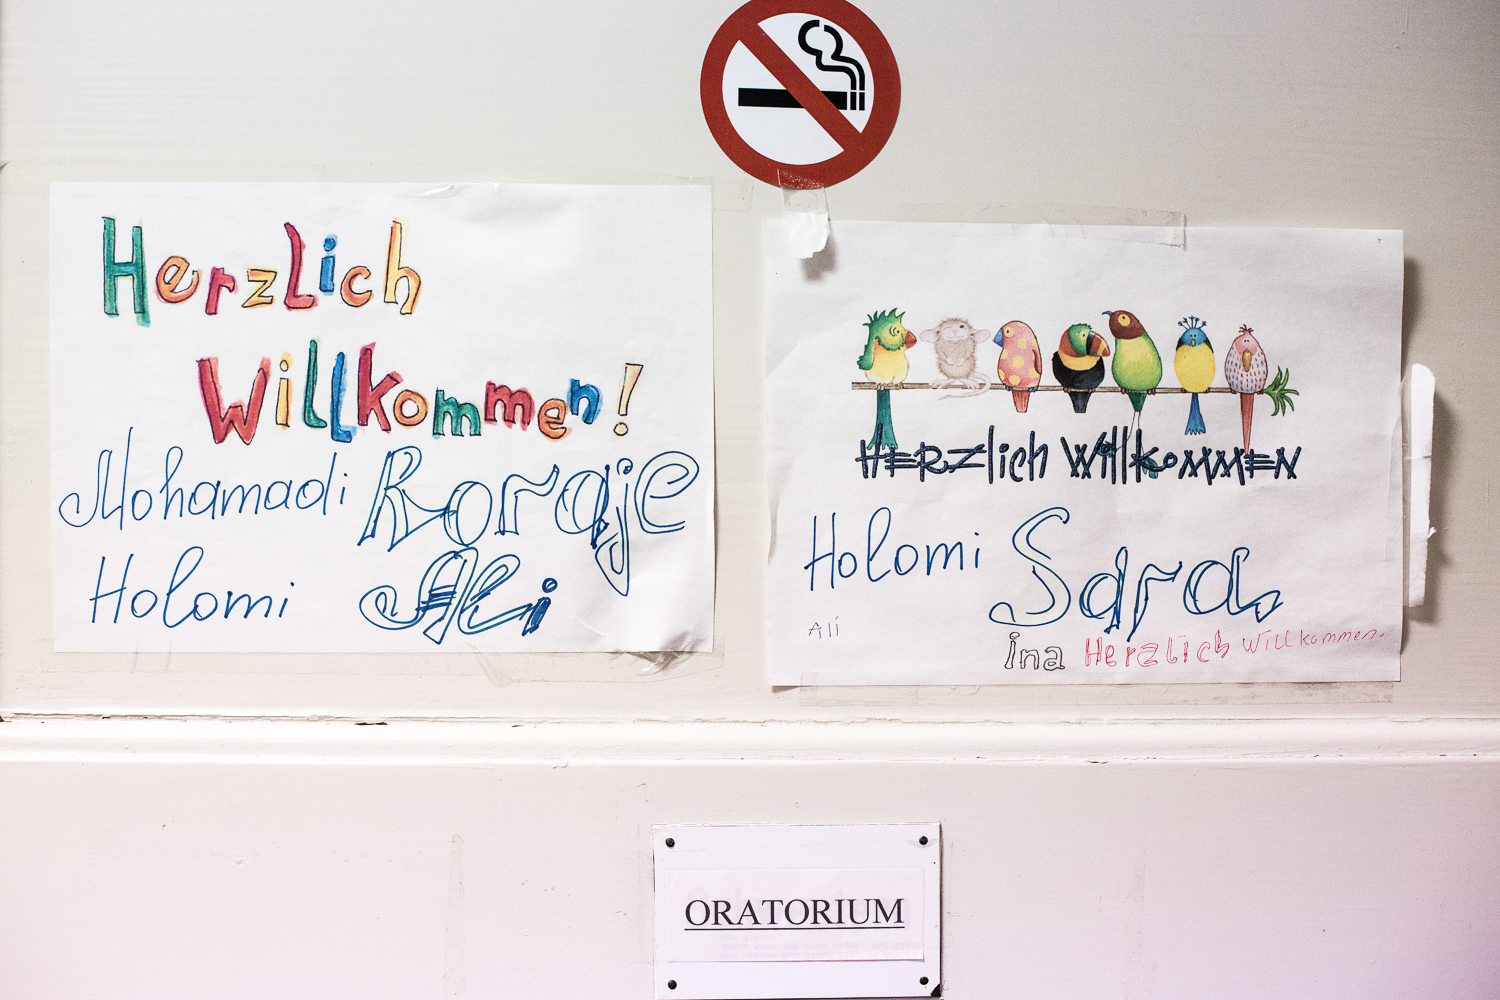 Herzlich
Willkommen!
Mohamadi Roraje
Holomi Ali
Herzlich Willkommen
Holomi Sara
Ali
ina Herzlich Willkommen.
ORATORIUM